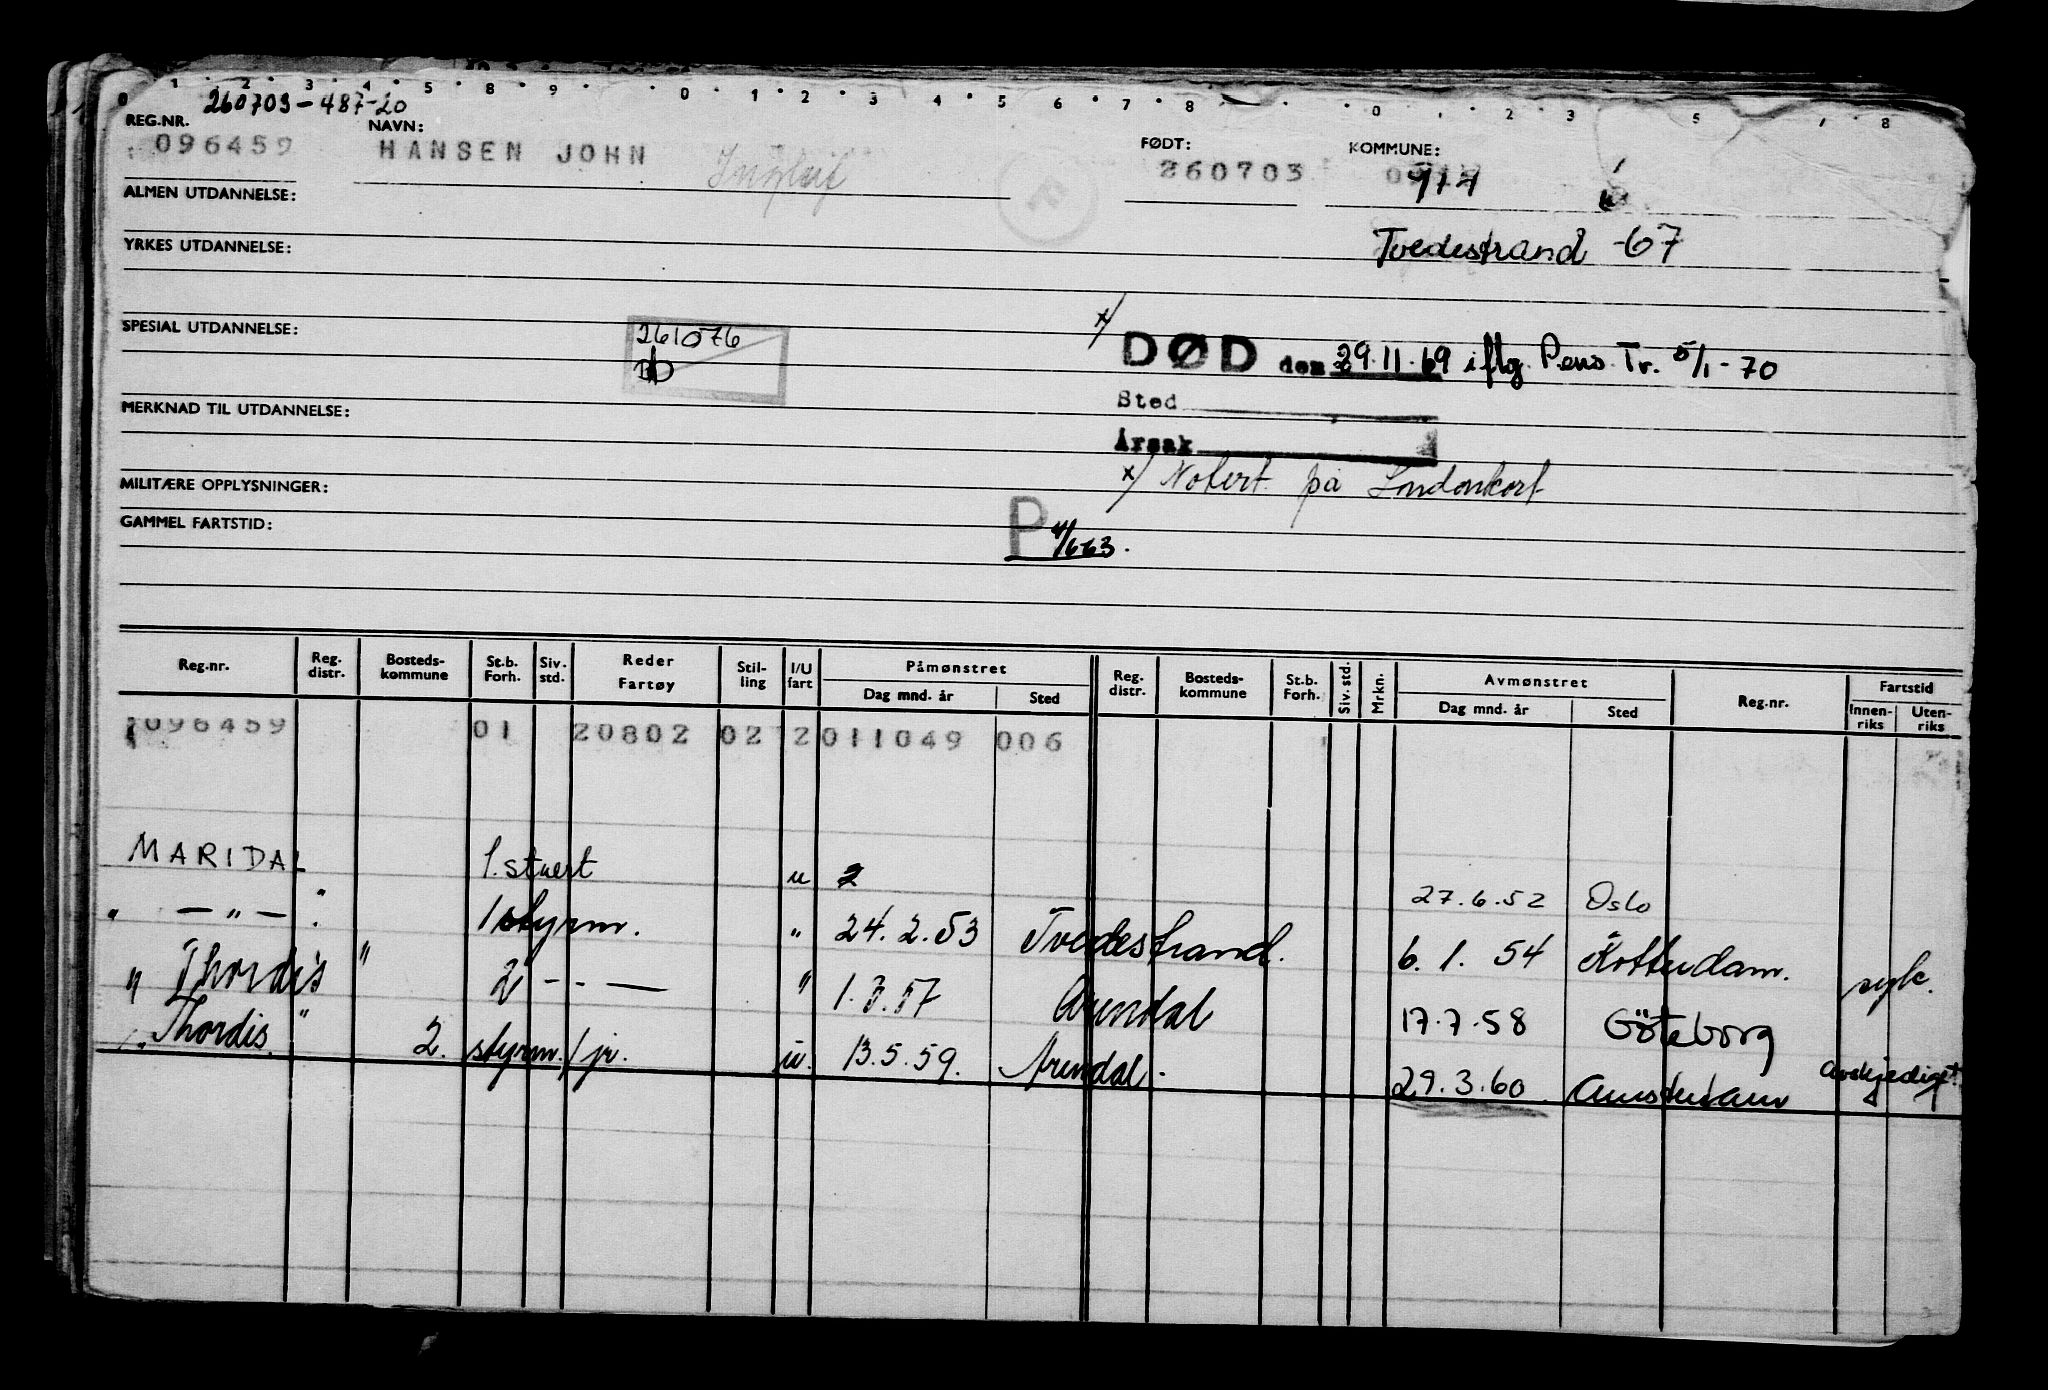 0 1 2 3 4 5 8 9 0 1 2 3 4 5 6 7 8 0 2 3 5 8
260703-487-20
REG.NR. NAVN: FØDT: KOMMUNE:
096459 HANSEN JOHN Ingleif 260703 914
ALMEN UTDANNELSE:
YRKES UTDANNELSE: Tvedestrand -67
SPESIAL UTDANNELSE: 261076
x/ DØD den 29.11.69 iflg. Pens. Tr. 5/1-70
Sted
MERKNAD TIL UTDANNELSE:
Årsak
x/ Notert på Londonkort
MILITÆRE OPPLYSNINGER:
GAMMEL FARTSTID: P 4/6-63.
Reg.nr. Reg. distr. Bosteds-kommune St.b. Forh. Siv. std. Reder Fartøy Stil-ling I/U fart Påmønstret Dag mnd. år Sted Reg. distr. Bosteds-kommune St.b. Forh. Siv. std. Mrkn. Avmønstret Dag mnd. år Sted Reg.nr. Fartstid Innen-riks Uten-riks
096459 01 20802 02 2 011049 006
MARIDAL 1. stuert u 2 27.6.52 Oslo
" — " — . 1 styrm. " 24.2.53 Tvedestrand. 6.1.54 Rotterdam. syk.
" Thordis " 2 - - — " 1.8.57 Arendal 17.7.58 Göteborg
" Thordis " 2. styrm./jr. u. 13.5.59. Arendal. 29.3.60 Amsterdam avskjediget